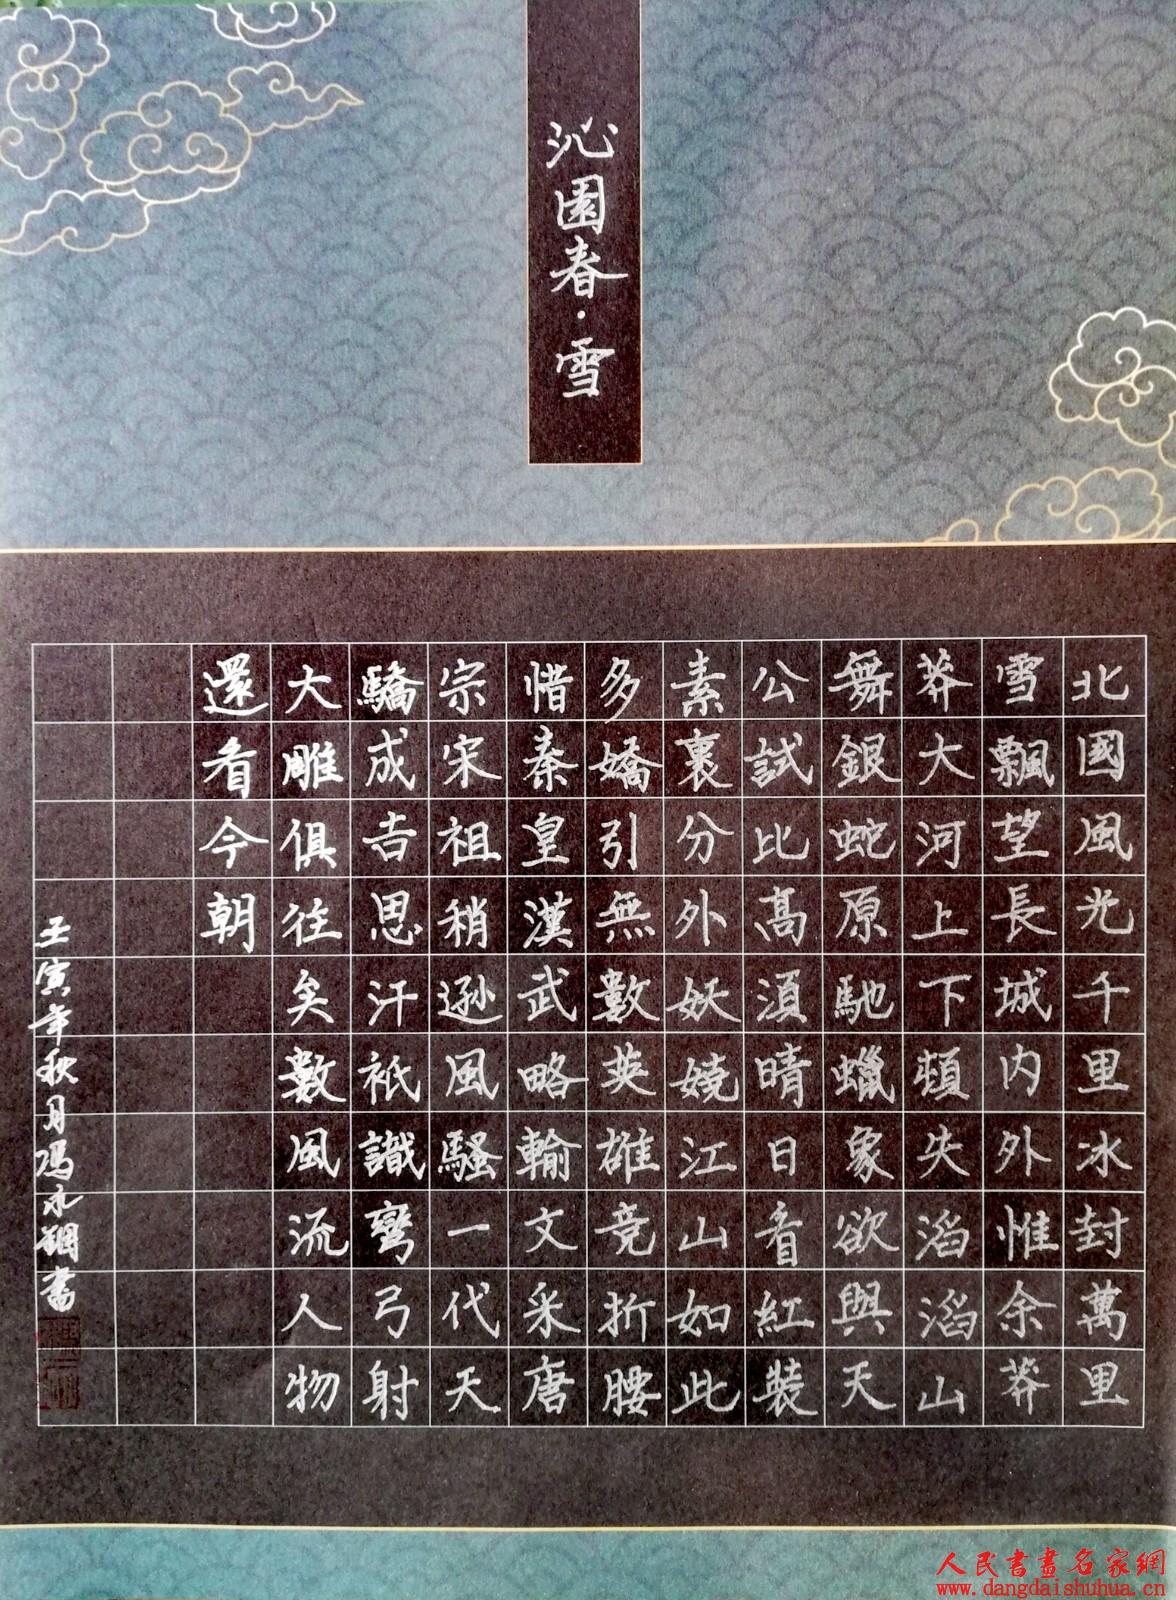 沁園春·雪
北國風光千里冰封萬里
雪飄望長城内外惟余莽
莽大河上下頓失滔滔山
舞銀蛇原馳蠟象欲與天
公試比髙須晴日看紅裝
素裹分外妖嬈江山如此
多嬌引無數英雄竞折腰
惜秦皇漢武略輸文采唐
宗宋祖稍遜風騷一代天
驕成吉思汗祇識彎弓射
大雕俱往矣數風流人物
還看今朝
壬寅年秋月馮永書
人民書畫名家網
www.dangdaishuhua.cn